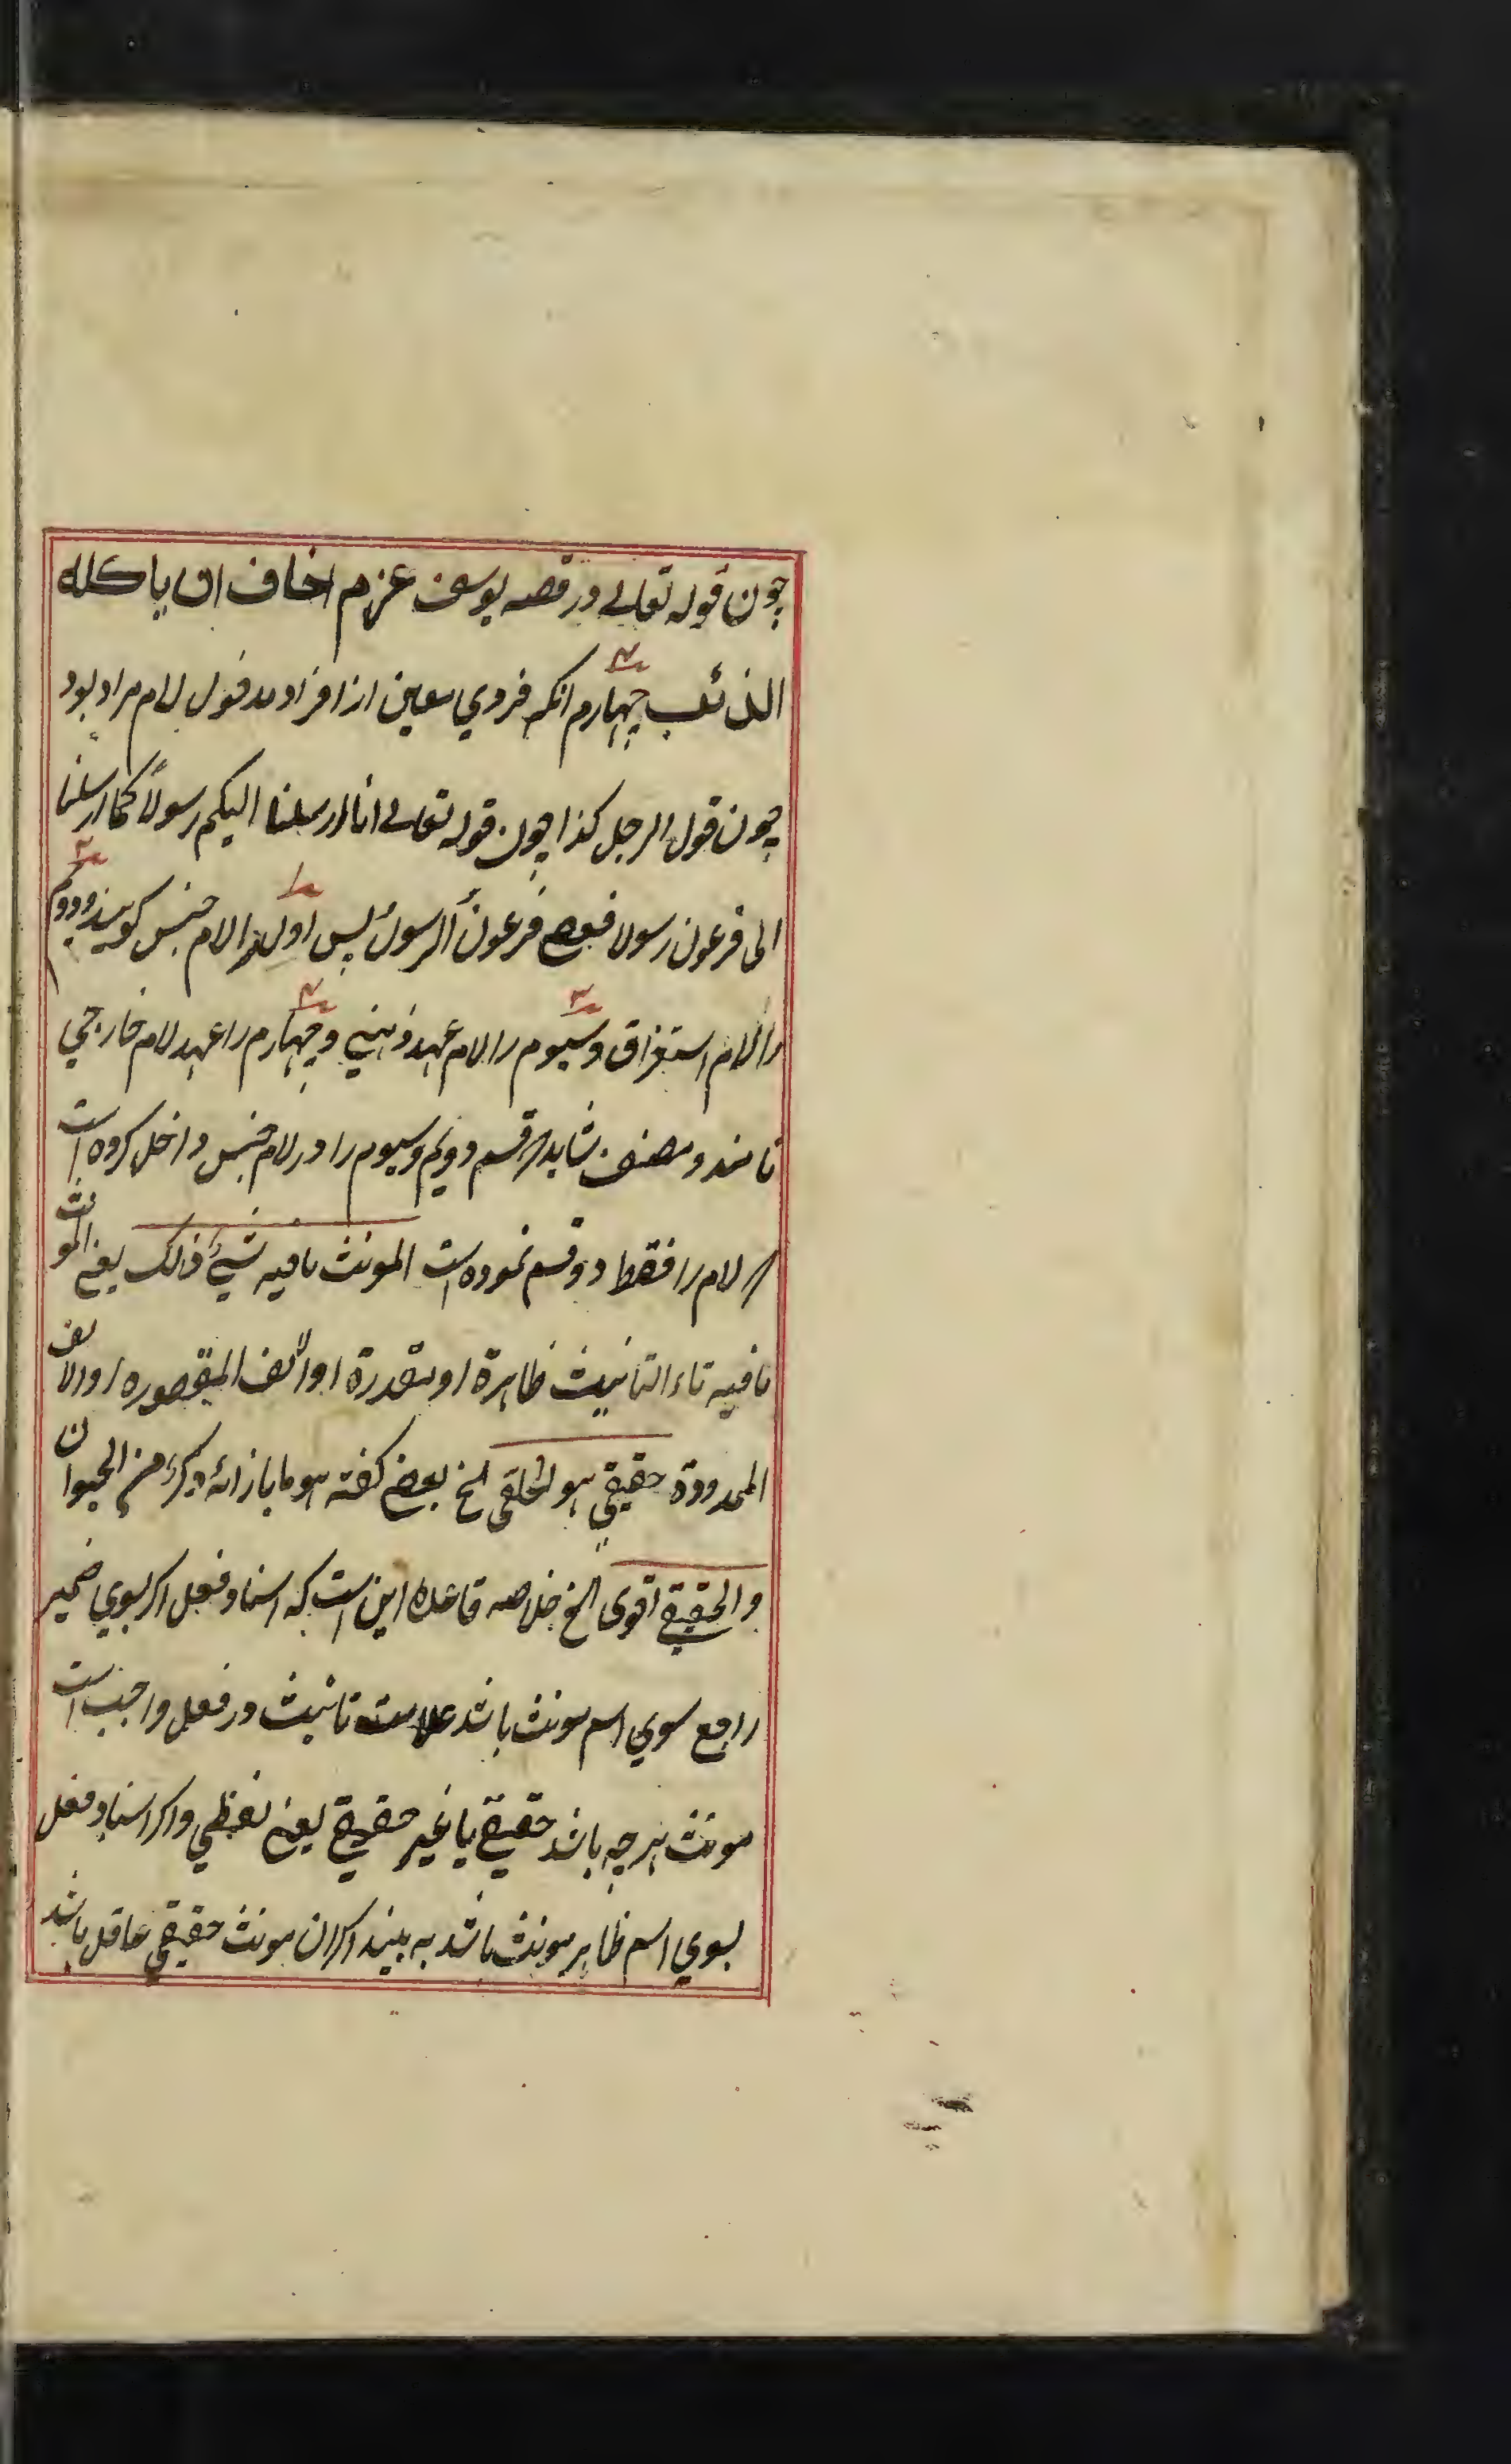 چون قوله تعالی در قصه یوسف عزم اخاف ان یاکله
الذئب چهارم انکه فردی معین از افراد مدخول لام مراد بود
چون قول الرجل کذا چون قوله تعالی انا ارسلنا الیکم رسولاً کما ارسلنا
الی فرعون رسولا فعصی فرعون الرسول پس اول را لام جنس کویند و دوم
را لام استغراق و سیوم را لام عهد ذهنی و چهارم را عهد لام خارجی
نامند و مصنف شاید قسم دویم و سیوم را در لام جنس داخل کرده است
لام را فقط دو قسم نموده است المونث ما فیه شیٔ ذلک یعنی المونث
ما فیه تاء التانیث ظاهرة او مقدرة او الالف المقصوره او الالف
الممدودة حقیقی هو الخلقی الخ بعضی کفته هو ما بازائه ذکر من الحیوان
والحقیقی اقوی الخ خلاصه قاعده این است که اسناد فعل اکر بسوی ضمیر
راجع سوی اسم مونث باشد علامت تانیث در فعل واجب است
مونث هر چه باشد حقیقی یا غیر حقیقی یعنی لفظی واکر اسناد فعل
بسوی اسم ظاهر مونث باشد به بیند اکر ان مونث حقیقی عاقل باشد